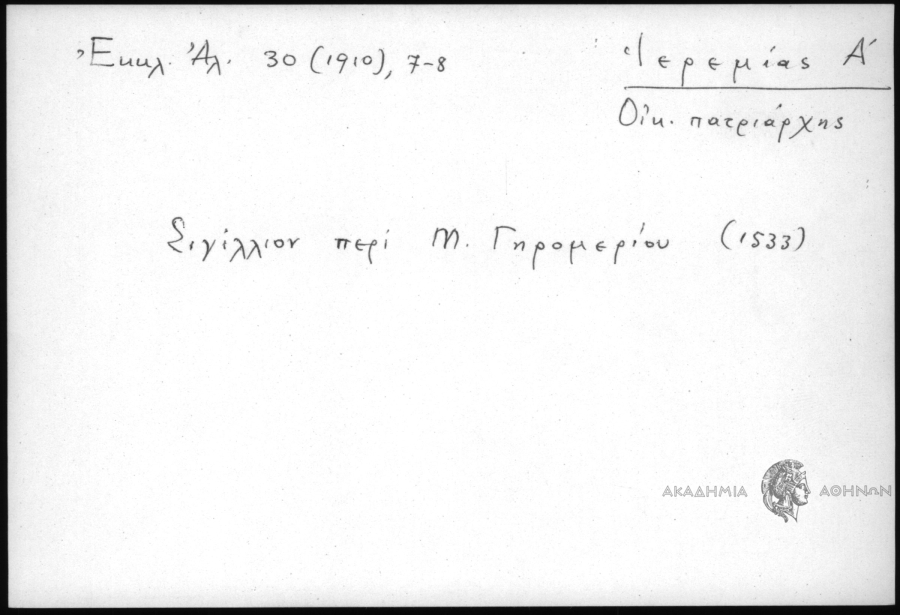 Ἐκκλ. Ἀλ. 30 (1910), 7-8
Ἱερεμίας Α΄
Οἰκ. πατριάρχης
Σιγίλλιον περί Μ. Γηρομερίου (1533)
ΑΚΑΔΗΜΙΑ ΑΘΗΝΩΝ